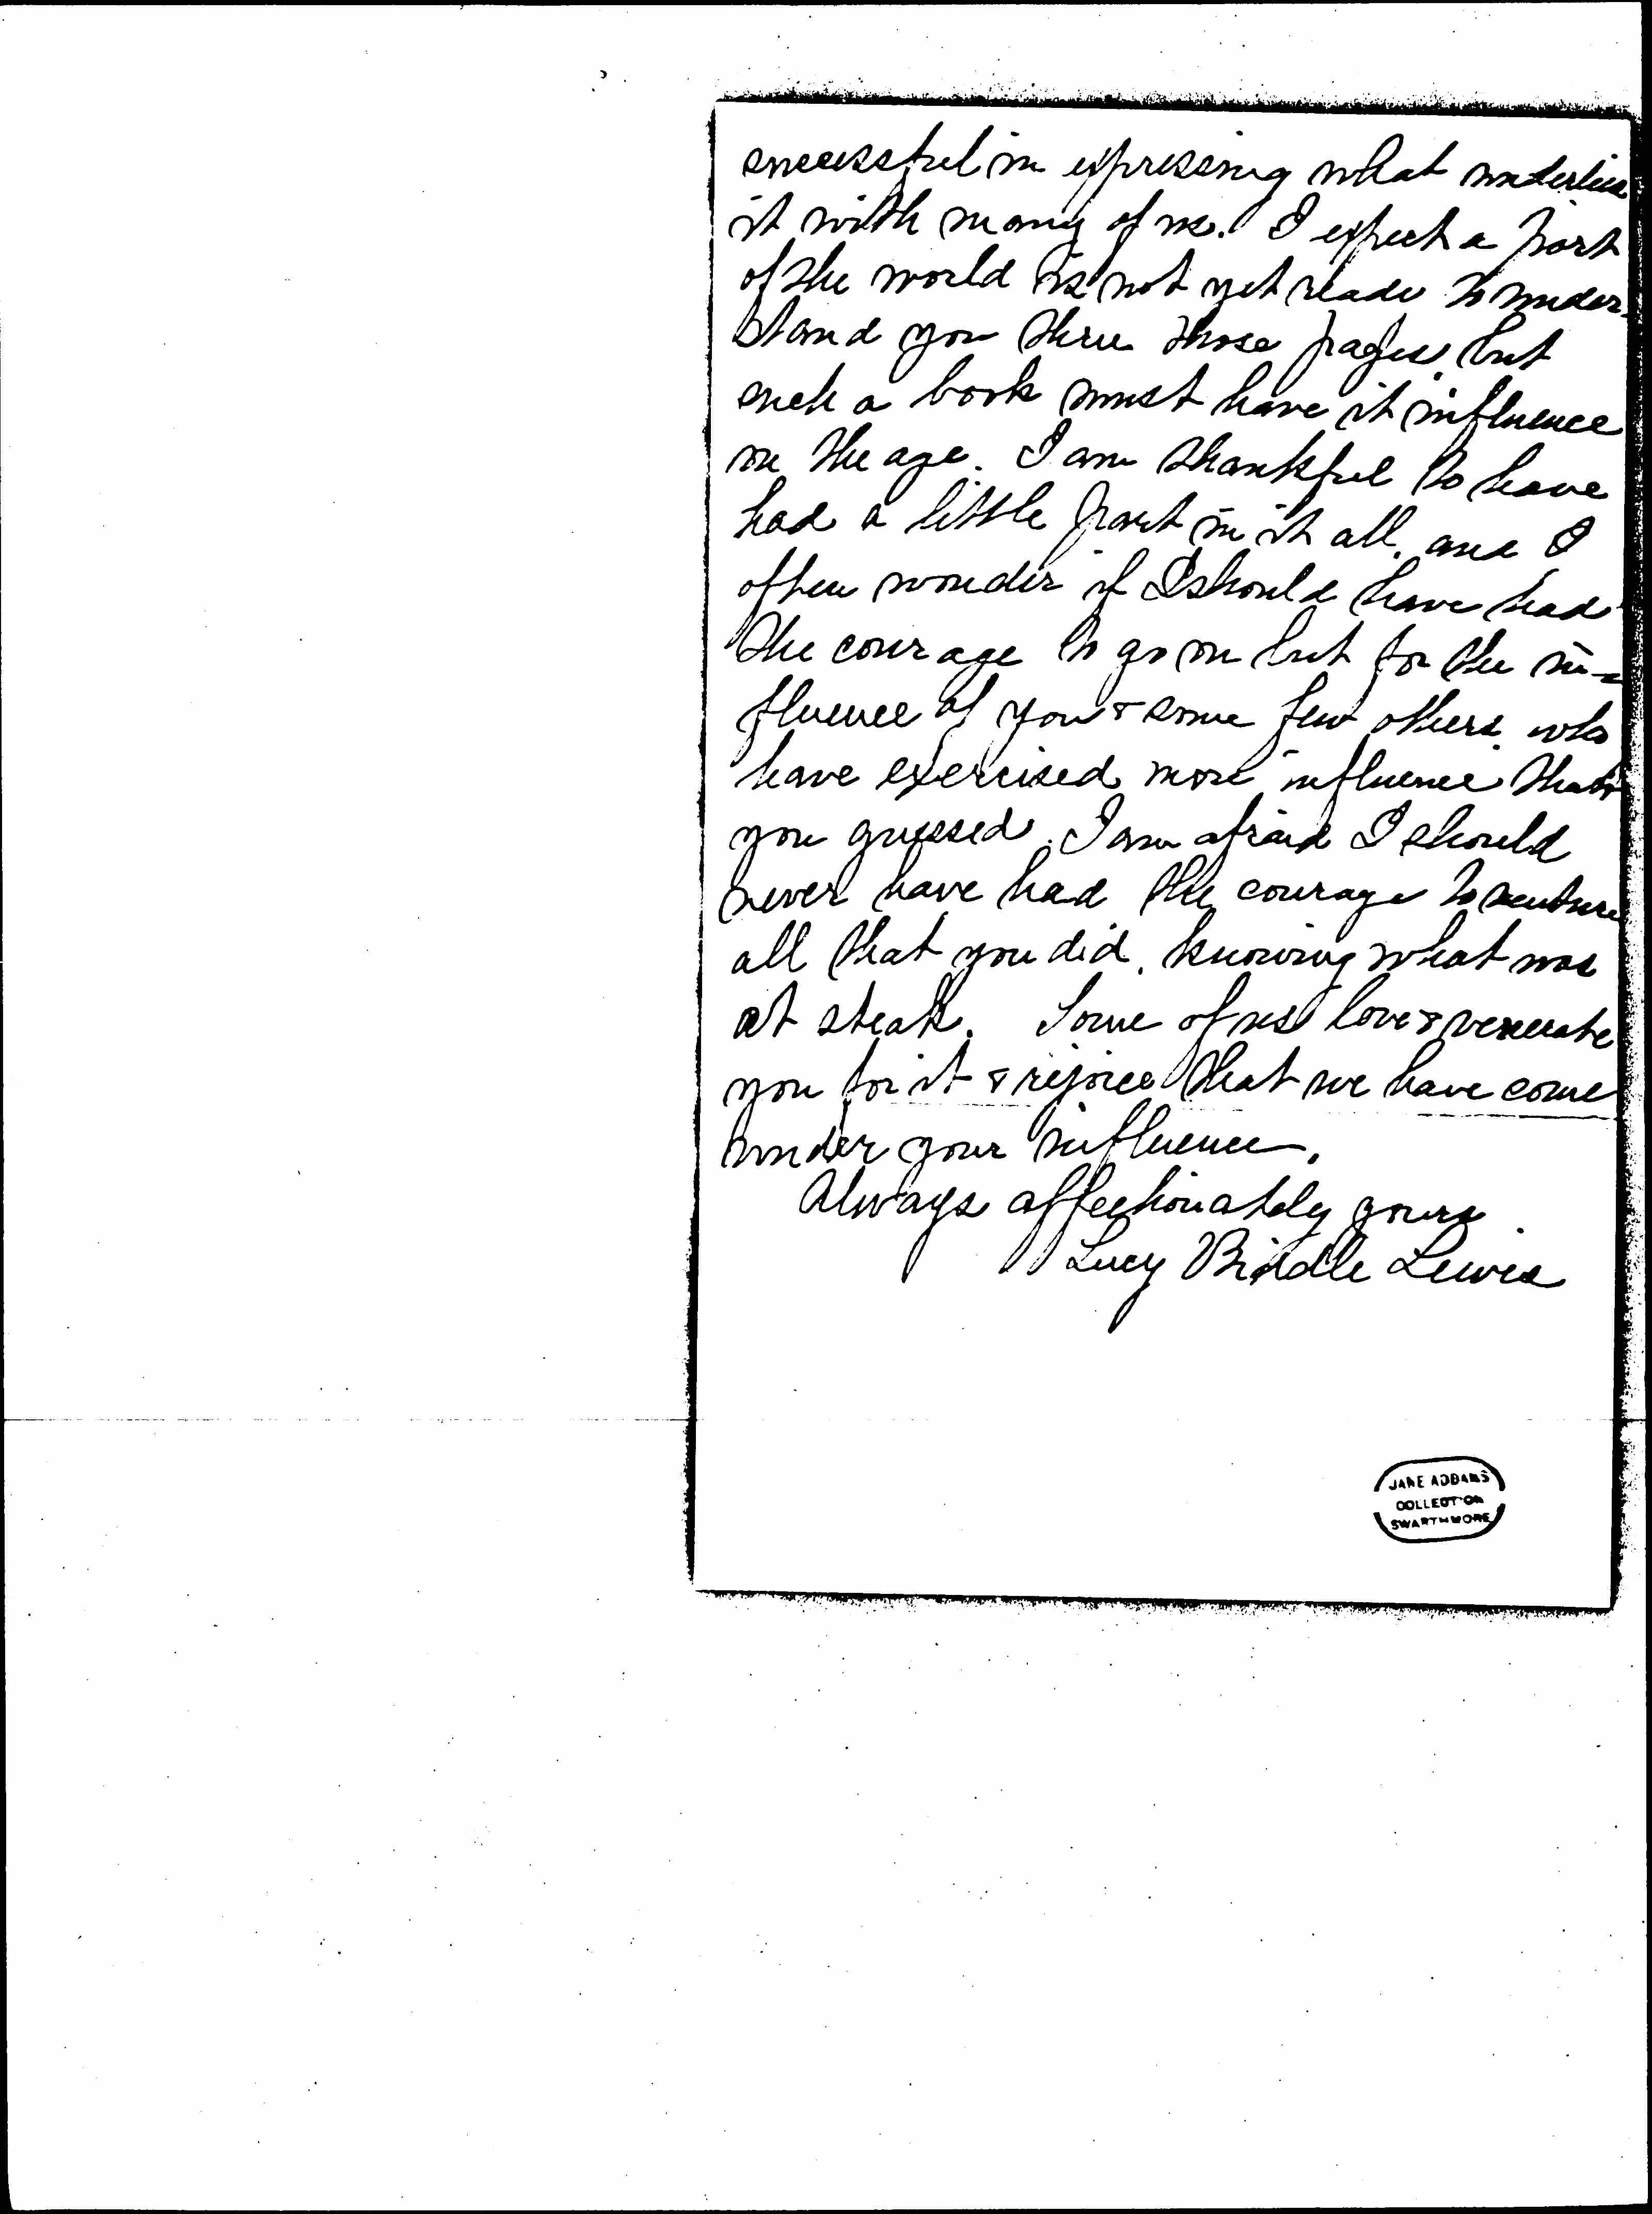 successful in expressing what underlies
it with many of us. I expect a part
of the world is not yet ready to under-
stand you thru those pages, but
such a book must have it influence
on the age. I am thankful to have
had a little part in it all, and I
often wonder if I should have had
the courage to go on but for the in-
fluence of you & some few others, who
have exercised more influence than
you guessed. I am afraid I should
never have had the courage to venture
all that you did, knowing what was
at steak. Some of us love & venerate
you for it & rejoice that we have come
under your influence.
Always affectionately yours.
Lucy Biddle Lewis
JANE ADDAMS
COLLECTION
SWARTHMORE